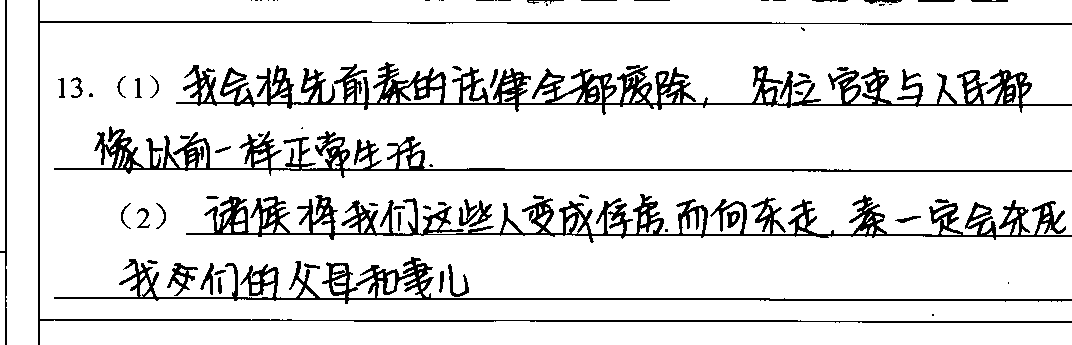 13.（1）我会将先前秦的法律全都废除，各位官吏与人民都
像以前一样正常生活.
（2）诸侯将我们这些人变成俘虏.而向东走.秦一定会杀死
我们的父母和妻儿